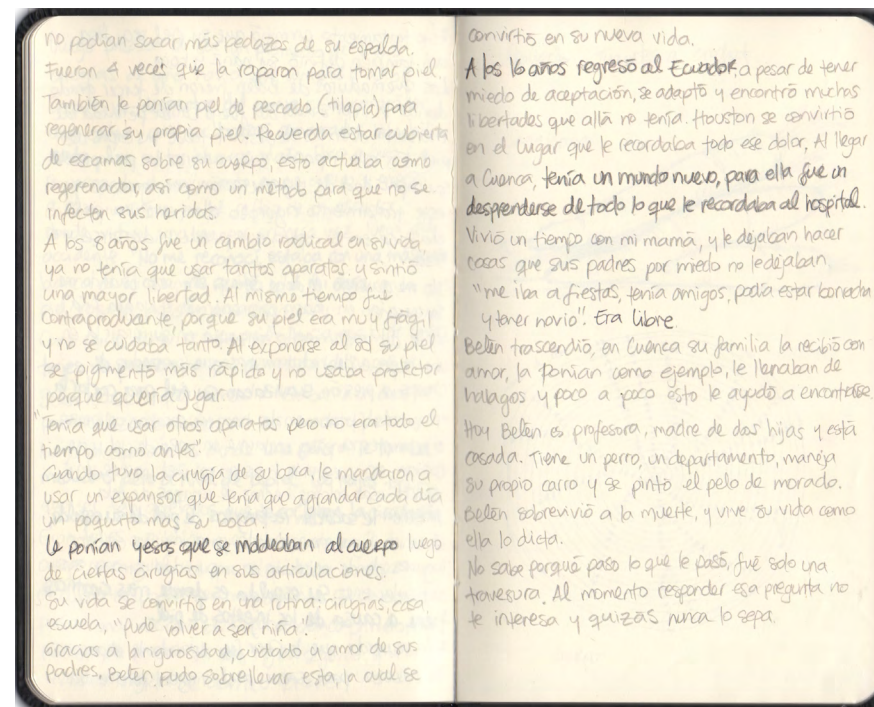 no podían sacar más pedazos de su espalda.
Fueron 4 veces que la raparon para tomar piel.
También le ponían piel de pescado (tilapia) para
regenerar su propia piel. Recuerda estar cubierta
de escamas sobre su cuerpo, esto actuaba como
regerenador así como un método para que no se
infecten sus heridas.
A los 8 años fue un cambio radical en su vida
ya no tenía que usar tantos aparatos y sintió
una mayor libertad. Al mismo tiempo fue
contraproducente, porque su piel era muy frágil
y no se cuidaba tanto. Al exponerse al sol su piel
se pigmentó más rápida y no usaba protector
porque quería jugar.
"Tenía que usar otros aparatos pero no era todo el
tiempo como antes".
Cuando tuvo la cirugía de su boca, le mandaron a
usar un expansor que tenía que agrandar cada día
un poquito mas su boca.
Le ponían yesos que se moldeaban al cuerpo luego
de ciertas cirugías en sus articulaciones.
Su vida se convirtió en una rutina: cirugías, casa,
escuela, "pude volver a ser niña".
Gracias a la rigurosidad, cuidado y amor de sus
padres, Belén pudo sobrellevar esta, la cual se
convirtió en su nueva vida.
A los 16 años regresó al Ecuador, a pesar de tener
miedo de aceptación, se adaptó y encontró muchas
libertades que allá no tenía. Houston se convirtió
en el lugar que le recordaba todo ese dolor, Al llegar
a Cuenca, tenía un mundo nuevo, para ella fue un
desprenderse de todo lo que le recordaba al hospital.
Vivió un tiempo con mi mamá, y le dejaban hacer
cosas que sus padres por miedo no le dejaban,
"me iba a fiestas, tenía amigos, podía estar borracha
y tener novio". Era libre.
Belén trascendió, en Cuenca su familia la recibió con
amor, la ponían como ejemplo, le llenaban de
halagos y poco a poco esto le ayudó a encontrarse.
Hoy Belén es profesora, madre de dos hijas y está
casada. Tiene un perro, un departamento, maneja
su propio carro y se pintó el pelo de morado.
Belén sobrevivió a la muerte, y vive su vida como
ella lo dicta.
No sabe porqué paso lo que le pasó, fué solo una
travesura. Al momento responder esa pregunta no
le interesa y quizás nunca lo sepa.